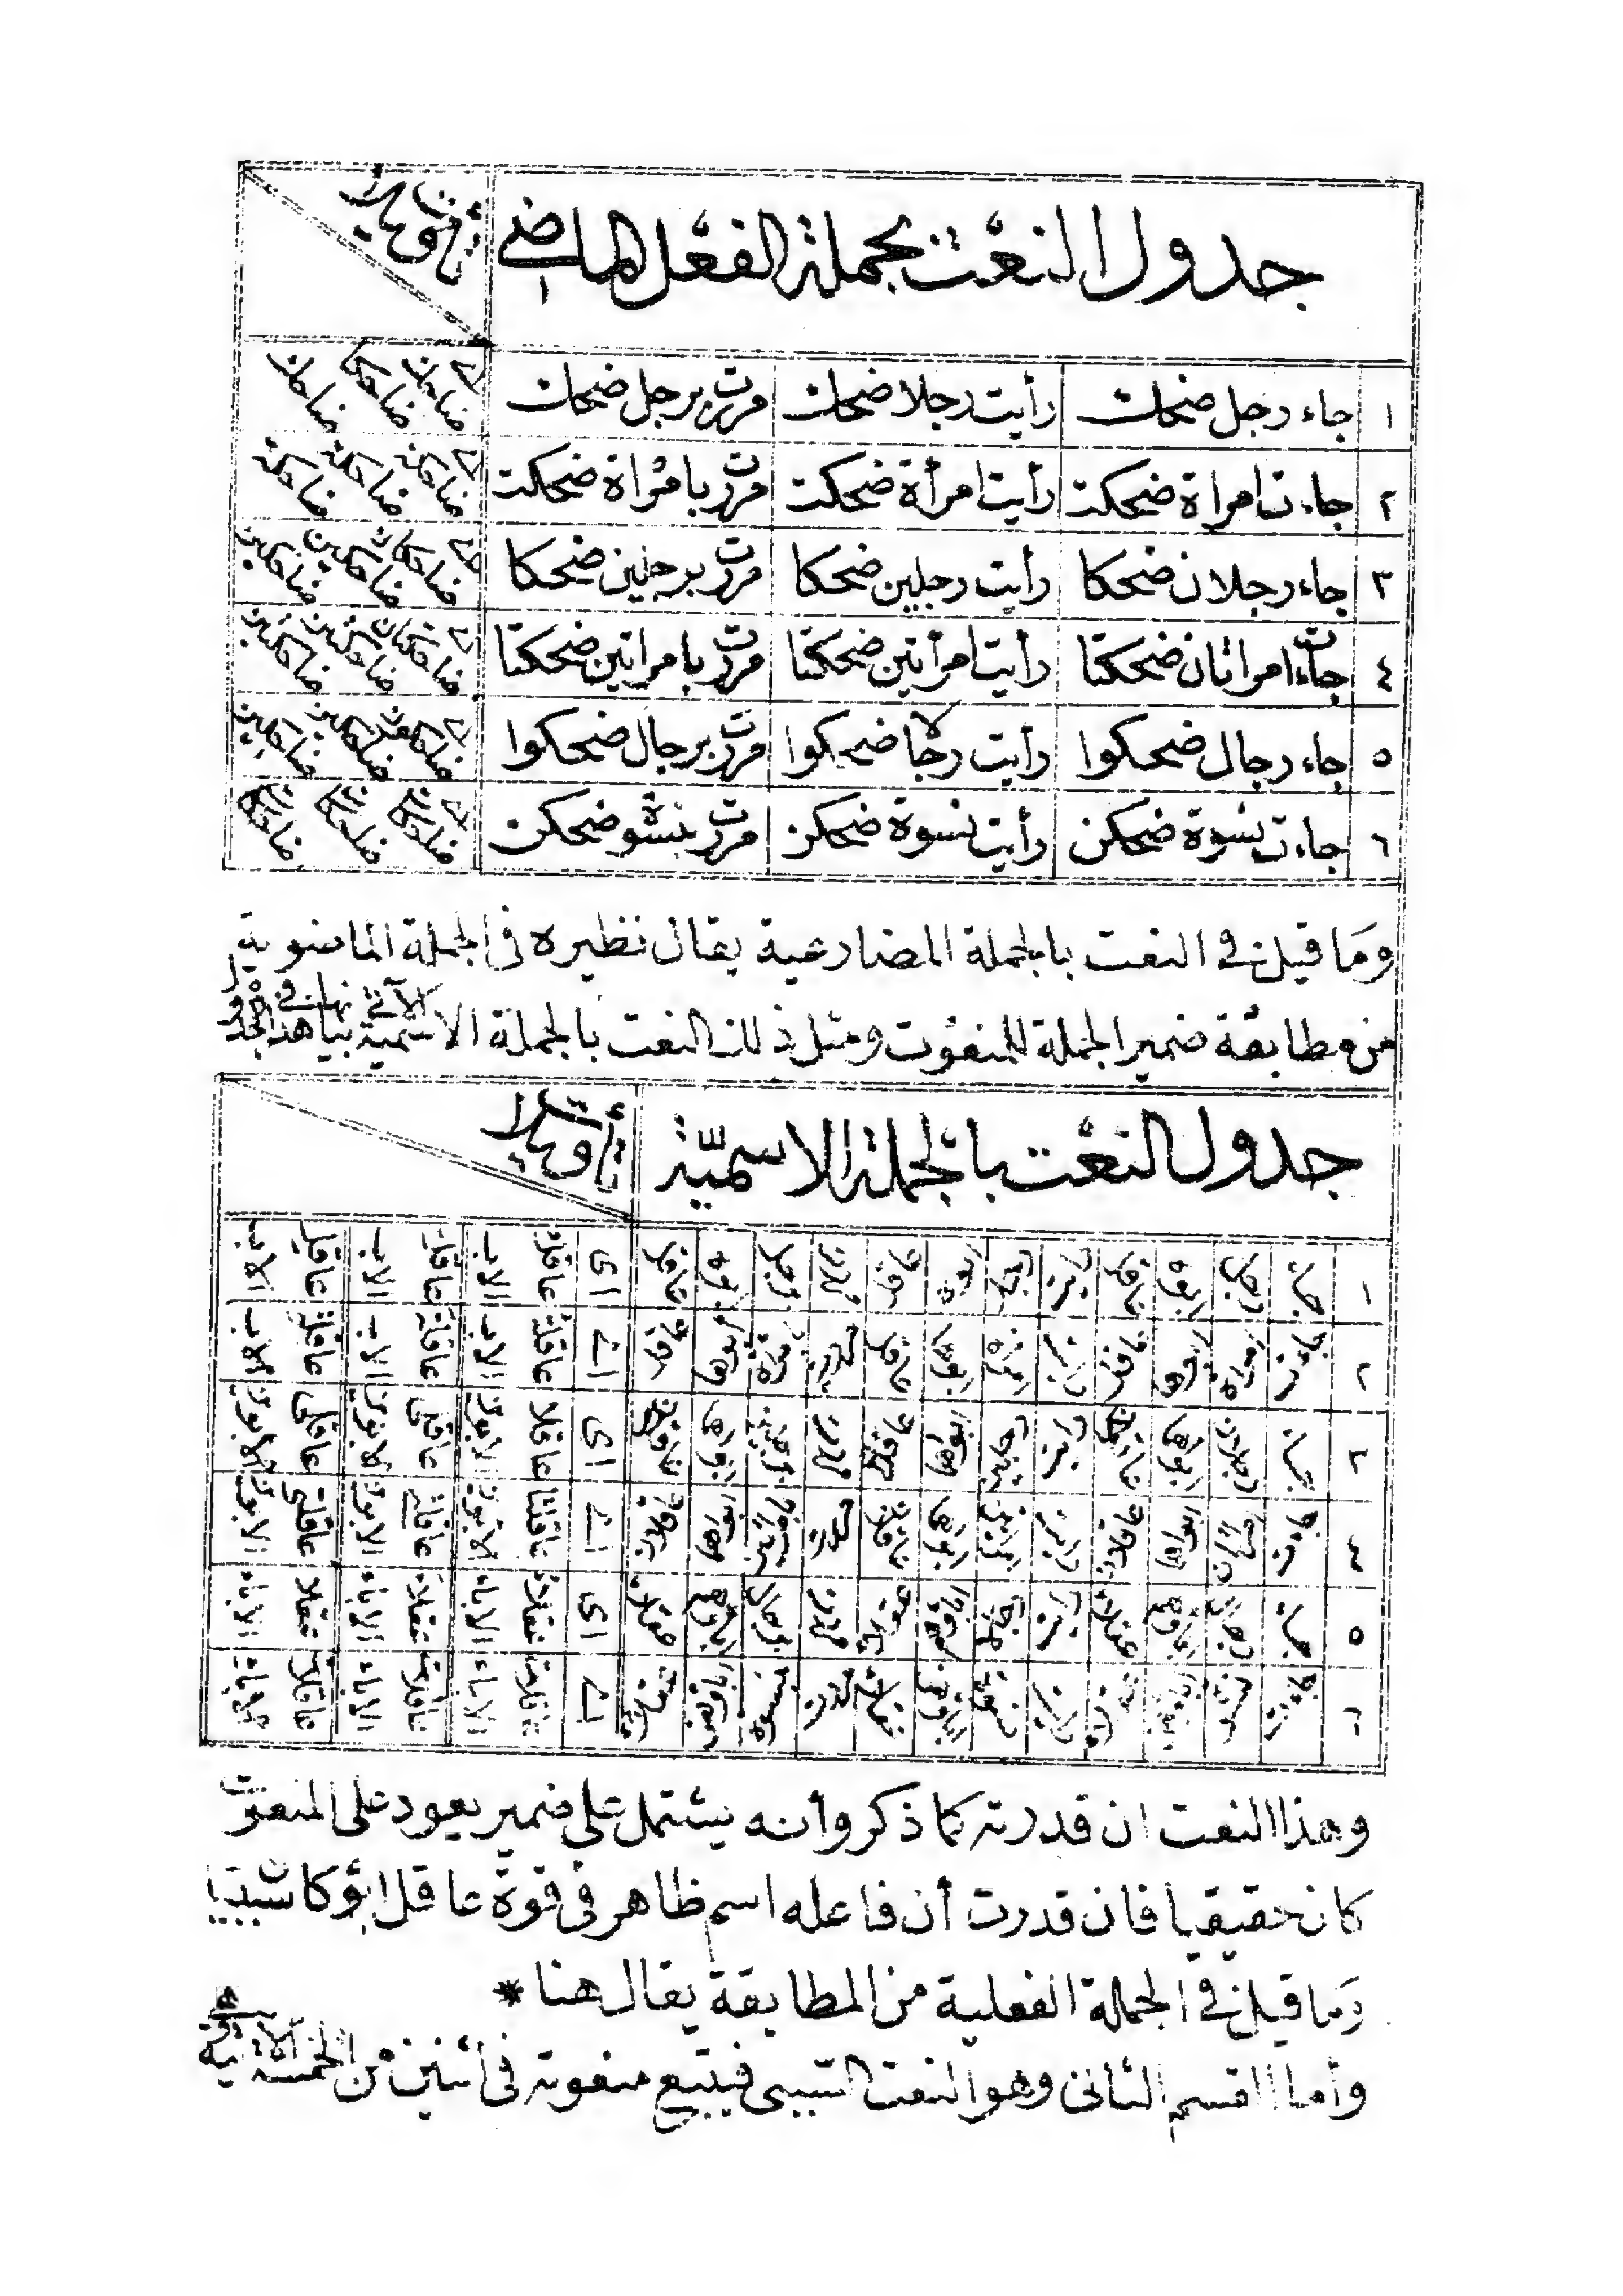 جدول النعت بجملة الفعل الماضى
تأويلا
١ جاء رجل ضحك رأيت رجلا ضحك مررت برجل ضحك اى ضاحك ضاحكا ضاحك
٢ جاءت امراة ضحكت رأيت امرأة ضحكت مررت بامراة ضحكت اى ضاحكة ضاحكة ضاحكة
٣ جاء رجلان ضحكا رأيت رجلين ضحكا مررت برجلين ضحكا اى ضاحكان ضاحكين ضاحكين
٤ جاءت امراتان ضحكتا رأيت امرأتين ضحكتا مررت بامراتين ضحكتا اى ضاحكتان ضاحكتين ضاحكتين
٥ جاء رجال ضحكوا رأيت رجالا ضحكوا مررت برجال ضحكوا اى ضاحكون ضاحكين ضاحكين
٦ جاءت نسوة ضحكن رأيت نسوة ضحكن مررت بنسوة ضحكن اى ضاحكات ضاحكات ضاحكات
وما قيل فى النعت بالجملة المضارعية يقال نظيره فى الجملة الماضوية
من مطابقة ضمير الجملة للمنعوت ومثل ذلك النعت بالجملة الاسمية الآتى بيانها فى هذا الجدول
جدول النعت بالجملة الاسميّة
تأويلا
١ جاء رجل ابوه عاقل رأيت رجلا ابوه عاقل مررت برجل ابوه عاقل اى عاقل الاب عاقل الاب عاقل الاب
٢ جاءت امراة ابوها عاقل رأيت امراة ابوها عاقل مررت بامراة ابوها عاقل اى عاقلة الاب عاقلة الاب عاقلة الاب
٣ جاء رجلان ابواهما عاقلان رأيت رجلين ابواهما عاقلان مررت برجلين ابواهما عاقلان اى عاقلا الابوين عاقلى الابوين عاقلى الابوين
٤ جاءت امراتان ابواهما عاقلان رأيت امراتين ابواهما عاقلان مررت بامراتين ابواهما عاقلان اى عاقلتا الابوين عاقلتى الابوين عاقلتى الابوين
٥ جاء رجال اباؤهم عقلاء رأيت رجالا اباؤهم عقلاء مررت برجال اباؤهم عقلاء اى عقلاء الاباء عقلاء الاباء عقلاء الاباء
٦ جاءت نسوة اباؤهن عقلاء رأيت نسوة اباؤهن عقلاء مررت بنسوة اباؤهن عقلاء اى عاقلات الاباء عاقلات الاباء عاقلات الاباء
وهذا النعت ان قدرته كما ذكر وأنه يشتمل على ضمير يعود على المنعوت
كان حقيقيا فان قدرت أن فاعله اسم ظاهر فى قوة عاقل ابوه كان سببيا
وما قيل فى الجملة الفعلية من المطابقة يقال هنا *
وأما القسم الثانى وهو النعت السببى فيتبع منعوته فى اثنين من الخمسة الآتية